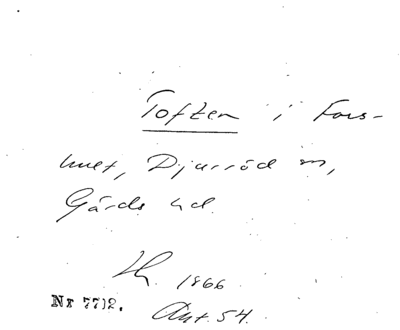 Toften i Fors-
hult, Djurröd sn,
Gärds hd.
1866
Nr 7712. Ant. 54.